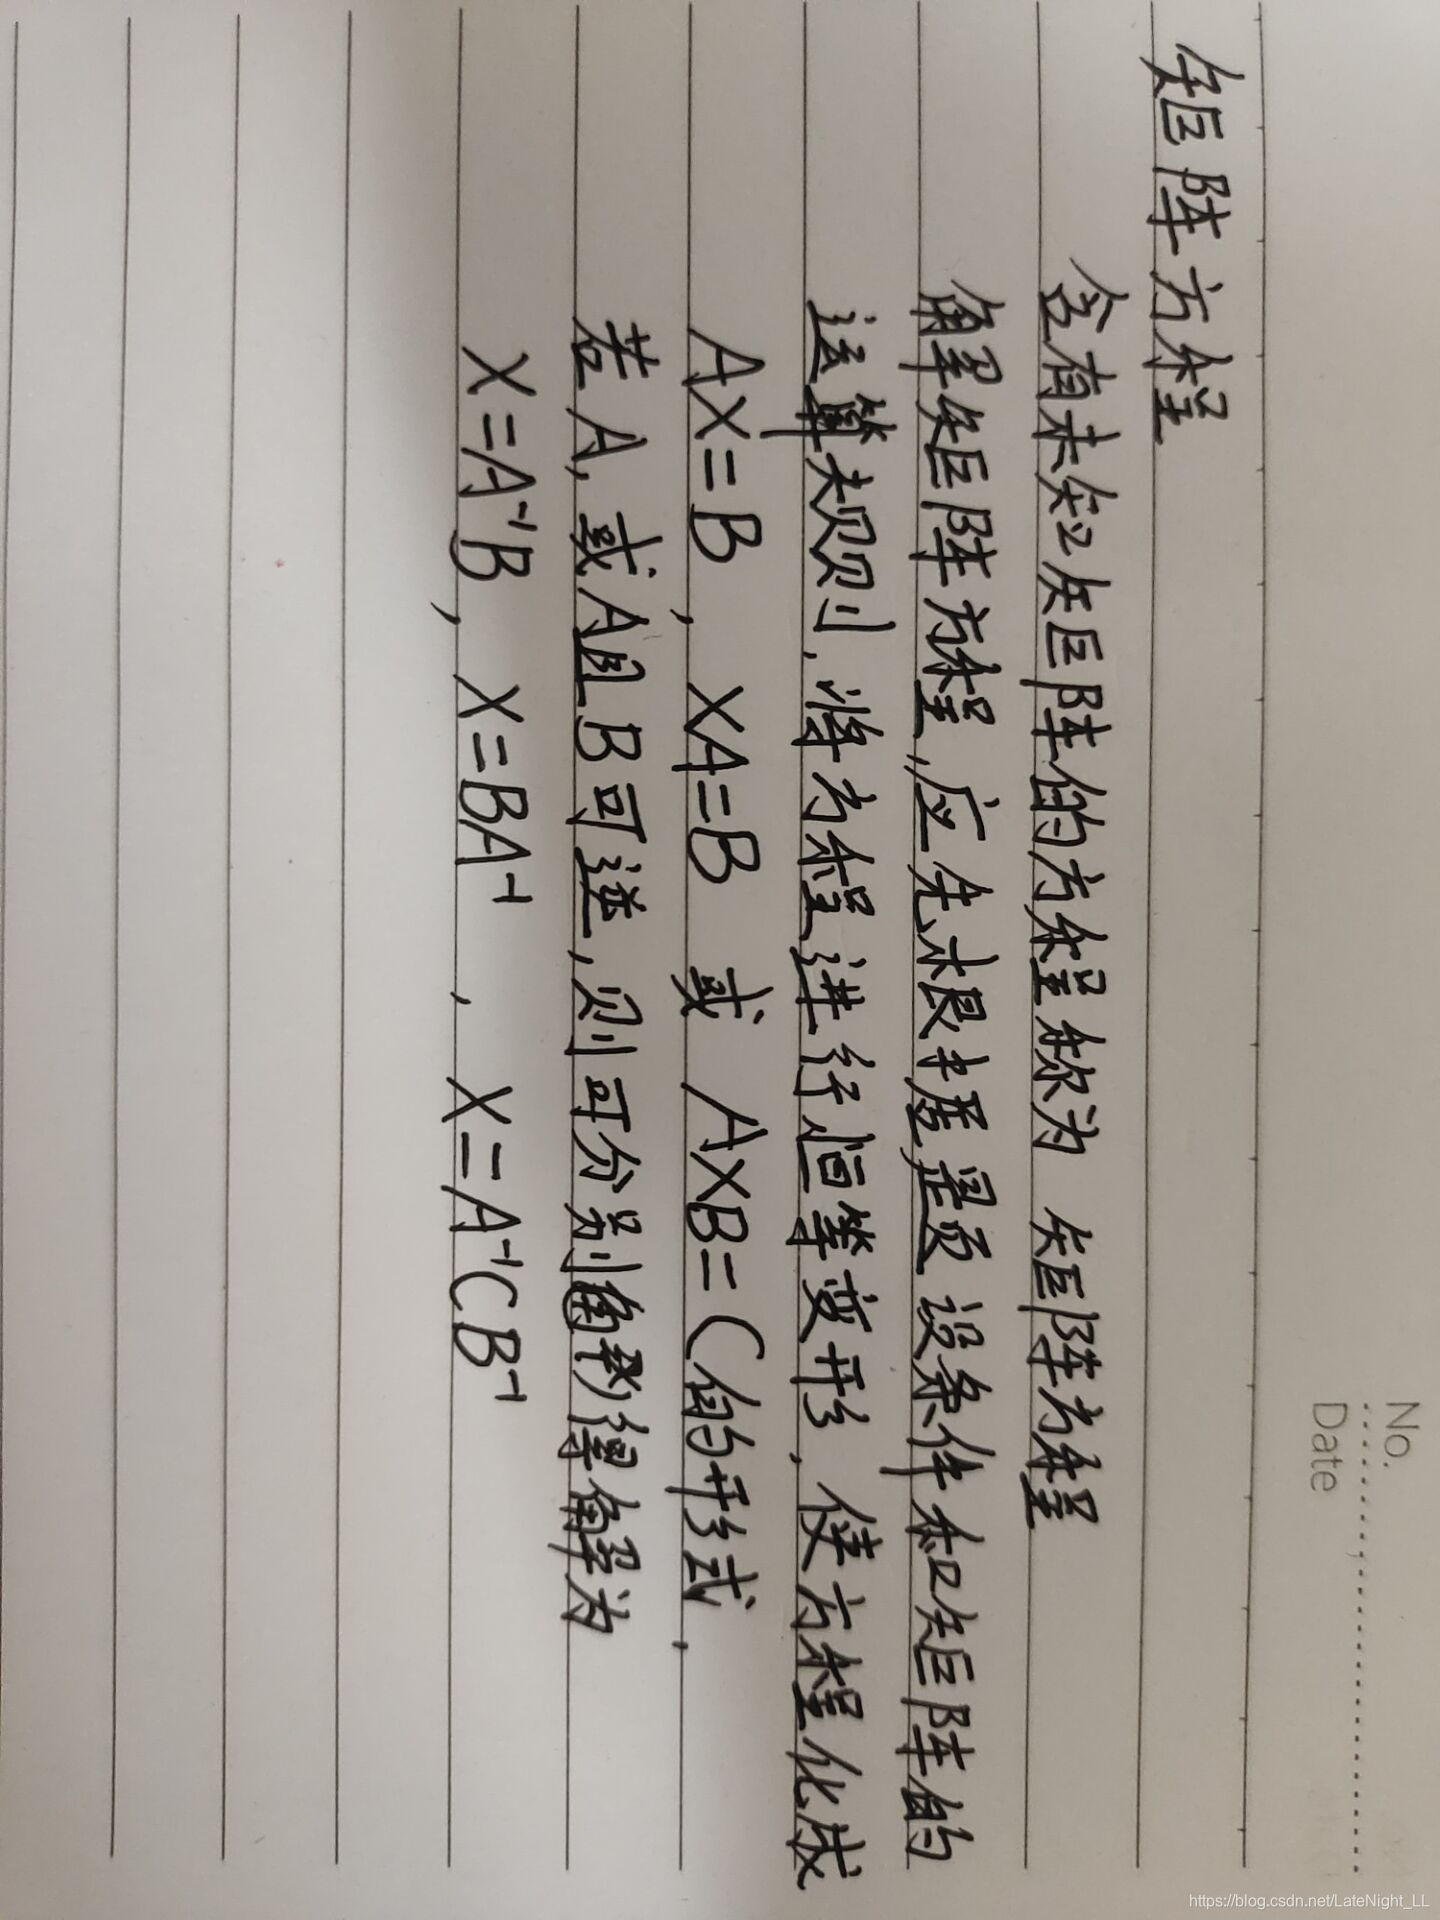 No.
Date
矩阵方程
含有未知矩阵的方程称为 矩阵方程
解矩阵方程,应先根据题设条件和矩阵的
运算规则,将方程进行恒等变形,使方程化成
AX=B, XA=B 或 AXB=C的形式,
若A,或A且B可逆,则可分别解得解为
X=A⁻¹B, X=BA⁻¹, X=A⁻¹CB⁻¹
https://blog.csdn.net/LateNight_LL